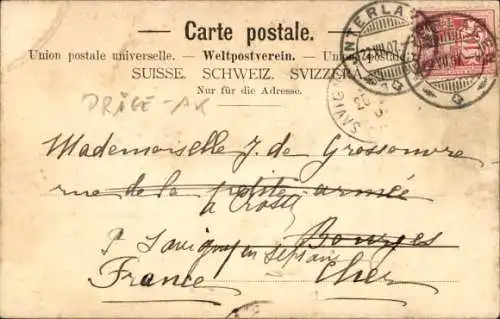 Carte postale.
Union postale universelle. — Weltpostverein. — Union postale
SUISSE. SCHWEIZ. SVIZZERA.
Nur für die Adresse.
INTERLAKEN
22.VII.07.
SAVIGNY
PRÄGE-AK
Mademoiselle J. de Grossouvre
rue de la petite armée
a Crosey
Bourges
P Savigny en Septaine
France Cher